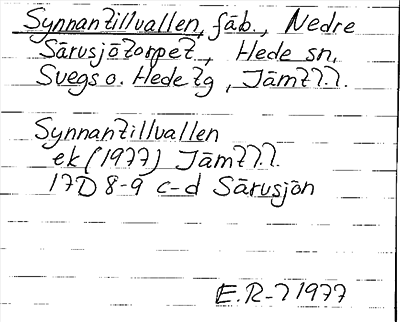 Synnantillvallen, fäb., Nedre
Särusjötorpet, Hede sn,
Svegs o. Hede tg, Jämtl.l.
Synnantillvallen
ek (1977) Jämtl.l.
17D 8-9 c-d Särusjön
E.R-l 1977